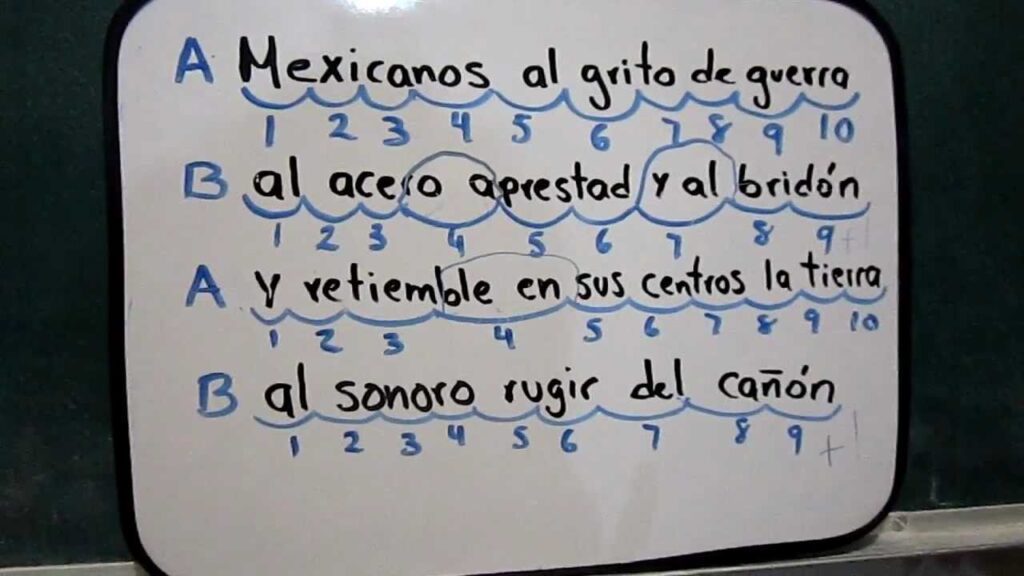 A Mexicanos al grito de guerra
1 2 3 4 5 6 7 8 9 10
B al acero aprestad y al bridón
1 2 3 4 5 6 7 8 9 +1
A Y retiemble en sus centros la tierra
1 2 3 4 5 6 7 8 9 10
B al sonoro rugir del cañón
1 2 3 4 5 6 7 8 9 +1